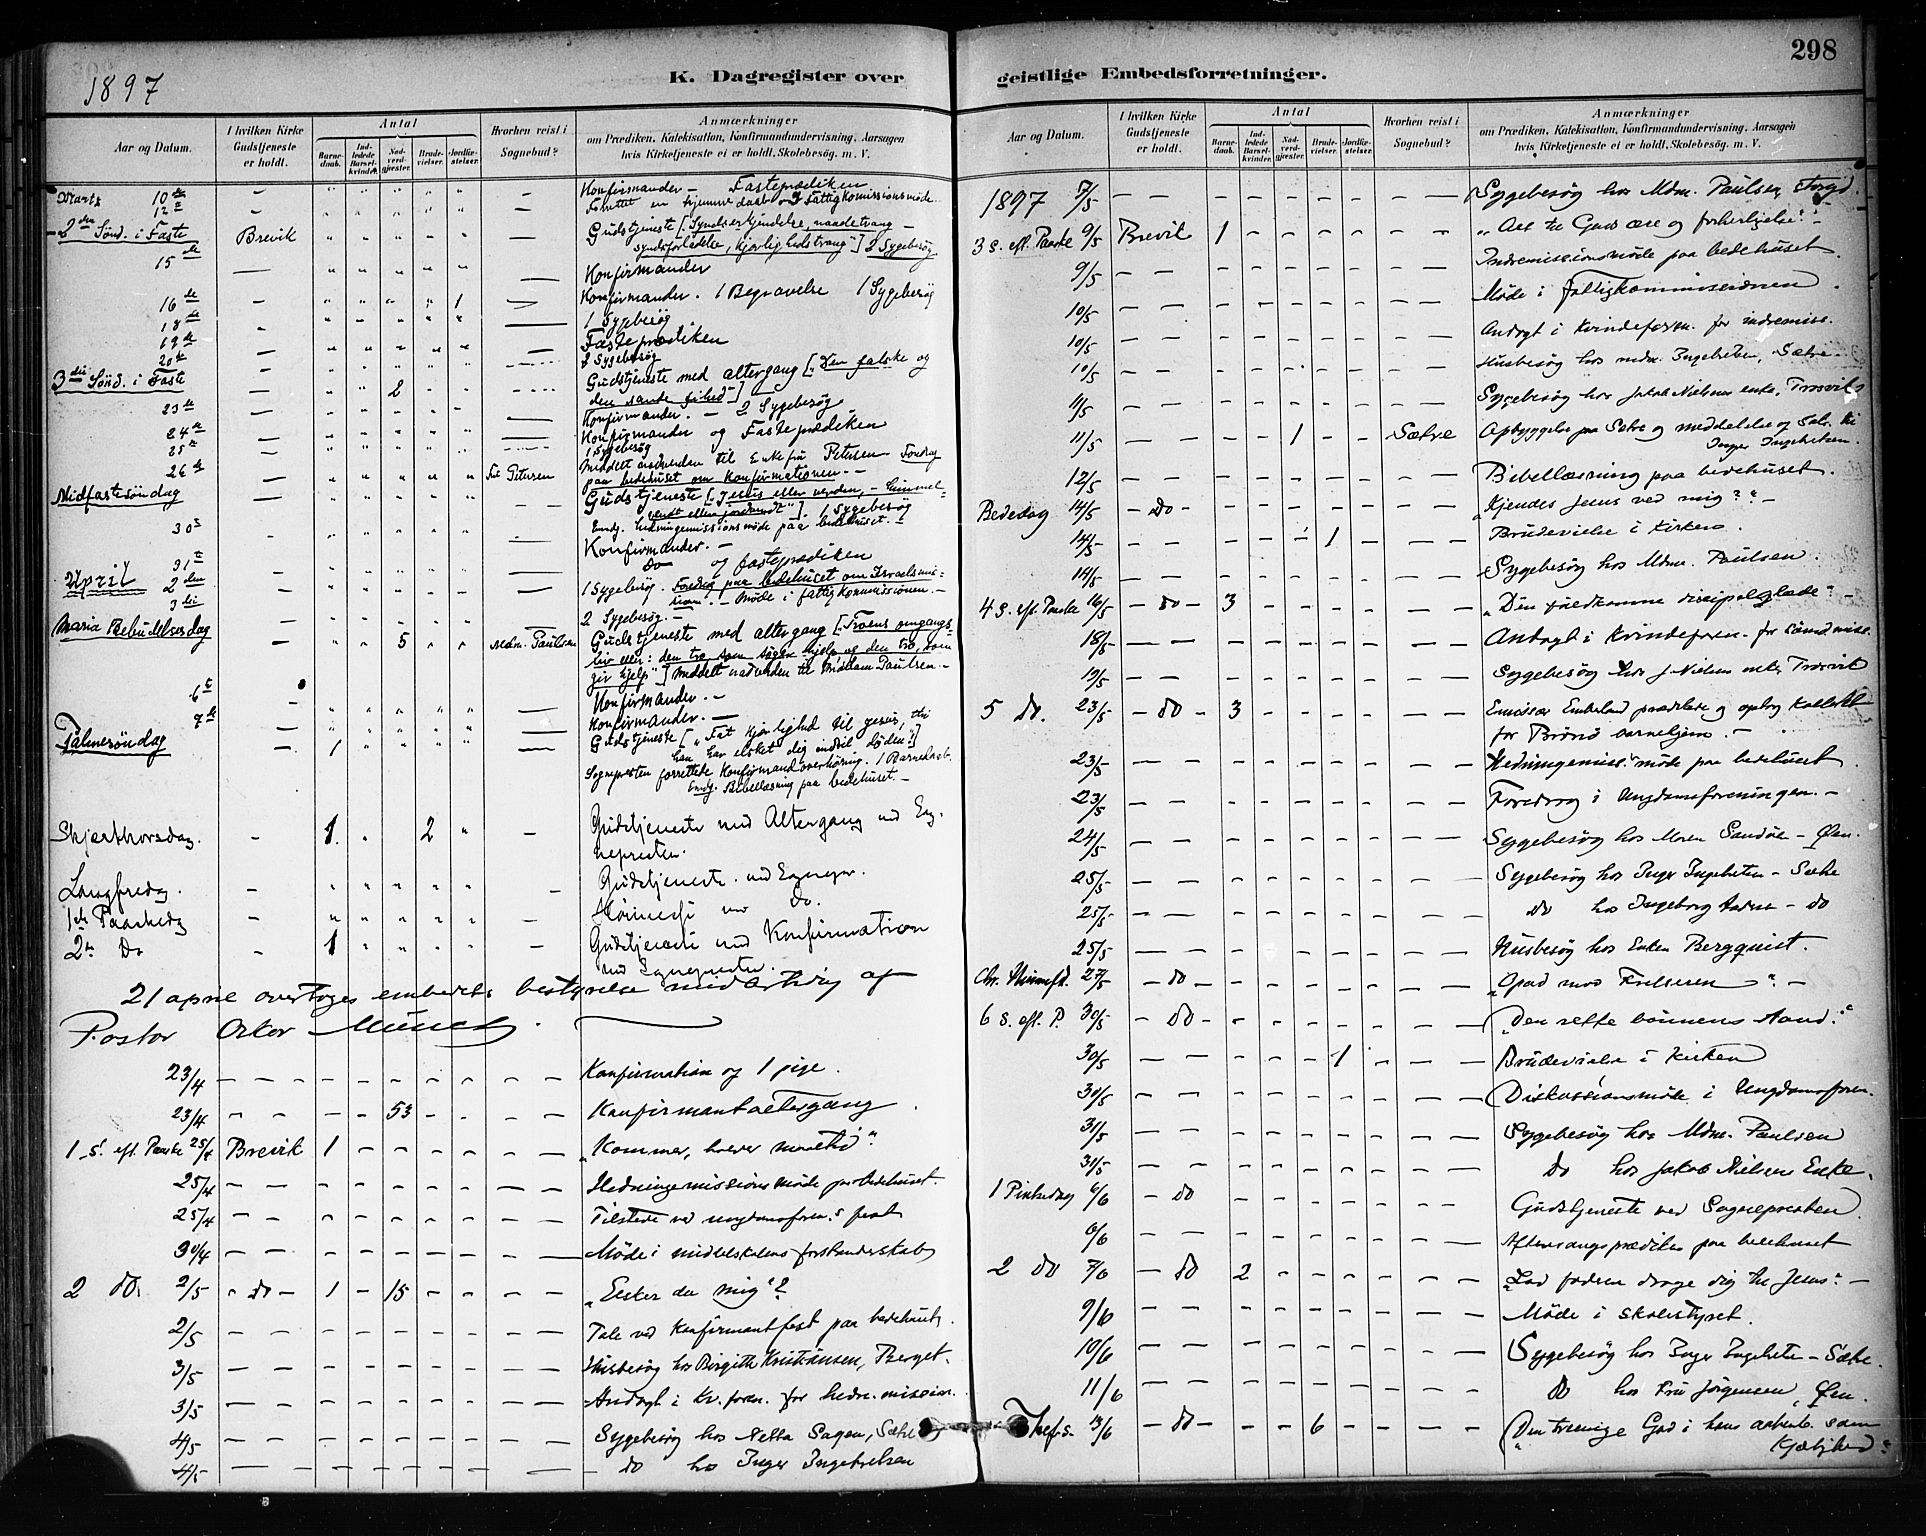 298
1897
K. Dagregister over
geistlige Embedsforretninger.
Aar og Datum.
I hvilken Kirke Gudstjeneste er holdt.
Antal
Barnedaab.
Indledede Barselkvinder.
Nadverdgjester.
Brudevielser.
Jordfæstelser.
Hvorhen reist i Sognebud?
Anmærkninger
om Prædiken, Katekisation, Konfirmandundervisning, Aarsagen
hvis Kirketjeneste ei er holdt, Skolebesøg. m. V.
Marts 10de Konfirmander – Fasteprædiken
12te en hjemmedaab Fattigkommissionsmøde
2den Sønd. i Faste Brevik Gudstjeneste [Syndserkjendelse, naadetrang –
syndsforladelse, kjærlighedstrang"] 2 Sygebesøg
15de Konfirmander
16de 1 Konfirmander. 1 Begravelse 1 Sygebesøg
18de 1 Sygebesøg
19de Fasteprædiken
20de 2 Sygebesøg
3die Sønd. i Faste 2 Gudstjeneste med altergang ["Den falske og
den sande frihed"]
23de Konfirmander. – 2 Sygebesøg
24de Konfirmander og Fasteprædiken
25de 1 Sygebesøg
26de Petersen Meddelt nadverden til Enkefru Petersen Foredrag
paa bedehuset om Konfirmationen. –
Midfastesøndag Gudstjeneste ["Jesus eller verden, – himmel-
vendt eller jordvendt"]. 1 Sygebesøg
Hedningemissionsmøde paa bedehuset. –
30te Konfirmander. –
31te Do og fasteprædiken
April 2den 1 Sygebesøg. Foredrag paa bedehuset om Israelsmis-
sionen. – Møde i fattigkommissionen. –
3die 2 Sygebesøg. –
Maria Bebudelsesdag 5 Mdm. Paulsen Gudstjeneste med altergang [Troens
liv eller: den tro som søger hjælp og den tro, som
gir hjelp"] Meddelt nadverden til Madam Paulsen. –
6te Konfirmander. –
7de Konfirmander. –
Palmesøndag 1 Gudstjeneste ["Fat kjærlighed til Jesus, thi
han har elsket dig indtil døden"]
Sognepresten forrettede Konfirmandoverhøring. 1 Barnedaab.
Bibellæsning paa bedehuset. –
Skjærthorsdag. 1 2 Gudstjeneste med Altergang ved Sog-
nepresten.
Langfredag. Gudstjeneste ved Sognepr.
1ste Paaskedag ved Do.
2den Do 1 Gudstjeneste med Konfirmation
ved Sognepresten.
21 april overtoges embedets bestyrelse midlertidig af
Pastor Oskar Münch.
23/4 Konfirmation og 1 pige.
23/4 53 Konfirmantaltergang.
1 S. eft. Paaske 25/4 Brevik 1 "Kommer, holder maaltid"
25/4 Hedningemissionsmøde paa bedehuset.
25/4 Tilstede ved ungdomsforen.s fest
30/4 Møde i middelskolens forstanderskab
2 Do. 2/5 Do 1 15 "Elsker du mig"?
2/5 Tale ved Konfirmantfest paa bedehuset.
3/5 Husbesøg hos Birgitte Kristiansen, Berget.
3/5 Andagt i Kv. foren. for hedn. mission.
4/5 Sygebesøg hos Netta Sagen, Sætre
4/5 Do hos Inger Ingebretsen
1897 7/5 Sygebesøg hos Mdm. Paulsen
3 S. eft. Paaske 9/5 Brevik 1 "Alt til Guds ære og forherligelse".
9/5 Indremissionsmøde paa bedehuset.
10/5 Møde i fattigkommissionen.
10/5 Andagt i Kvindeforen. for indremiss.
10/5 Husbesøg hos mdm. Ingebretsen, Sætre.
11/5 Sygebesøg hos Jakob Nielsens enke, Trosvik
11/5 1 Sætre Opbyggelse paa Sætre og meddelelse af til
Inger Ingebretsen.
12/5 Bibellæsning paa bedehuset.
Bededag 14/5 Do "Kjendes Jesus ved mig?" –
14/5 1 Brudevielse i kirken.
14/5 Sygebesøg hos Mdm. Paulsen.
4 S. eft. Paaske 16/5 Do 3 "Den fuldkomne discipelglæde" –
18/5 Andagt i Kvindeforen. for sømdmiss.
19/5 Sygebesøg hos J. Nielsens enke, Trosvik
5 Do. 23/5 Do 3 Emissær Emberland prædikede og optog kollekt
for barnehjem. –
23/5 Hedningemiss.møde paa bedehuset.
23/5 Foredrag i Ungdomsforeningen. –
24/5 Sygebesøg hos Maren Sandøe – Øen.
25/5 Sygebesøg hos Inger Ingebretsen – Sætre
25/5 Do hos Ingeborg – Do
25/5 Husbesøg hos Enken Bergquist.
Chr. Himmelfd. 27/5 Do "Opad mod Frelseren" –
6 S. eft. P. 30/5 Do "Den rette bønnens Aand."
30/5 1 Brudevielse i kirken
30/5 Diskussionsmøde i Ungdomsforen.
31/5 Sygebesøg hos Mdm. Paulsen
31/5 Do hos Jakob Nielsens Enke.
1 Pinsedag 6/6 Do Gudstjeneste ved Sognepresten.
6/6 Aftensangsprædiken paa bedehuset
2 Do 7/6 Do 2 "Lad faderen drage dig til Jesus". –
9/6 Møde i skolestyret.
10/6 Sygebesøg hos Inger Ingebretsen – Sætre.
11/6 Do hos Fru Jørgensen, Øen.
Tref.s. 13/6 Do 6 "Den treenige Gud i hans aabenb. som
Kjærlighed"